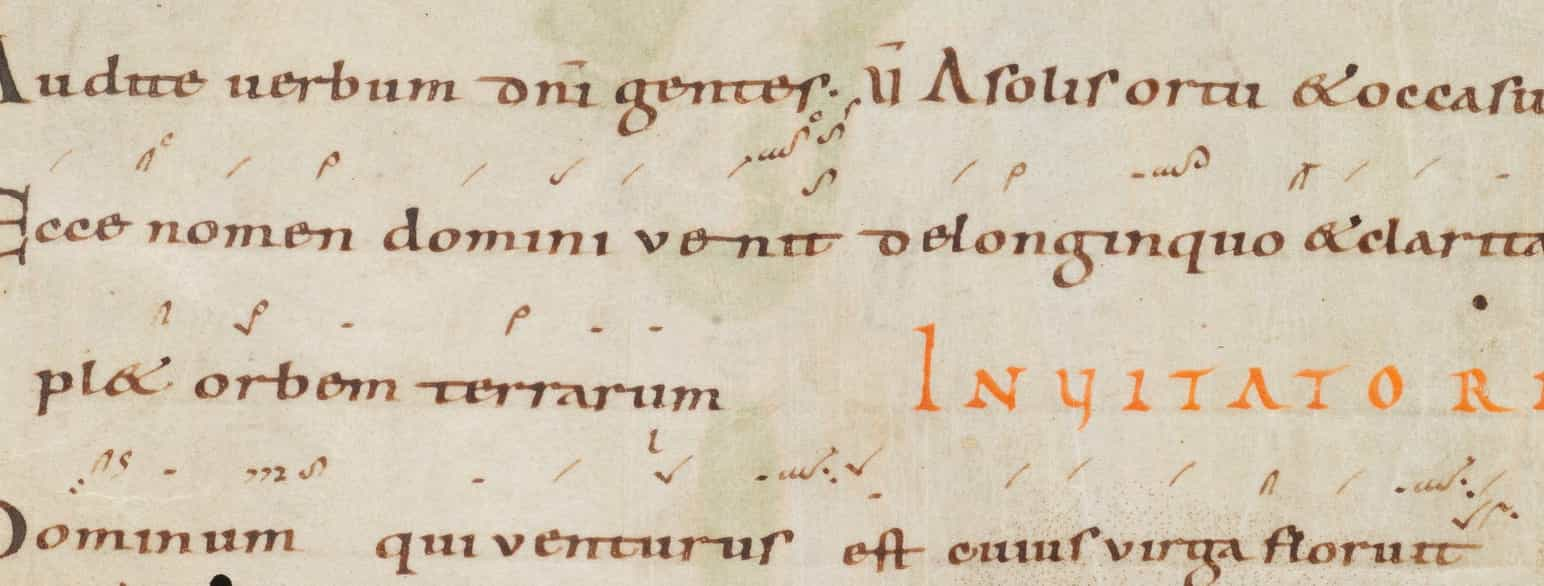 Audite uerbum dnī gentes. V̄ A solis ortu & occasu
Ecce nomen domini venit de longinquo & clarita
pl& orbem terrarum INVITATORI
Dominum qui venturus est cuius virga floruit